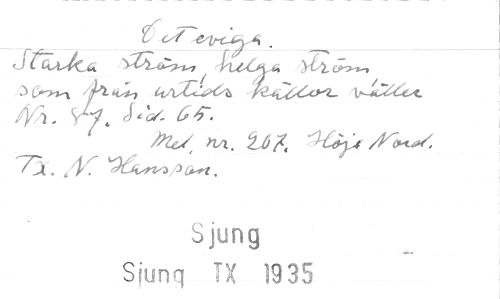 Det eviga.
Starka ström, helga ström,
som från urtids källor väller
Nr. 87. Sid. 65.
Mel. nr. 207. Höje Nord.
Tx. N. Hansson.
Sjung
Sjung TX 1935